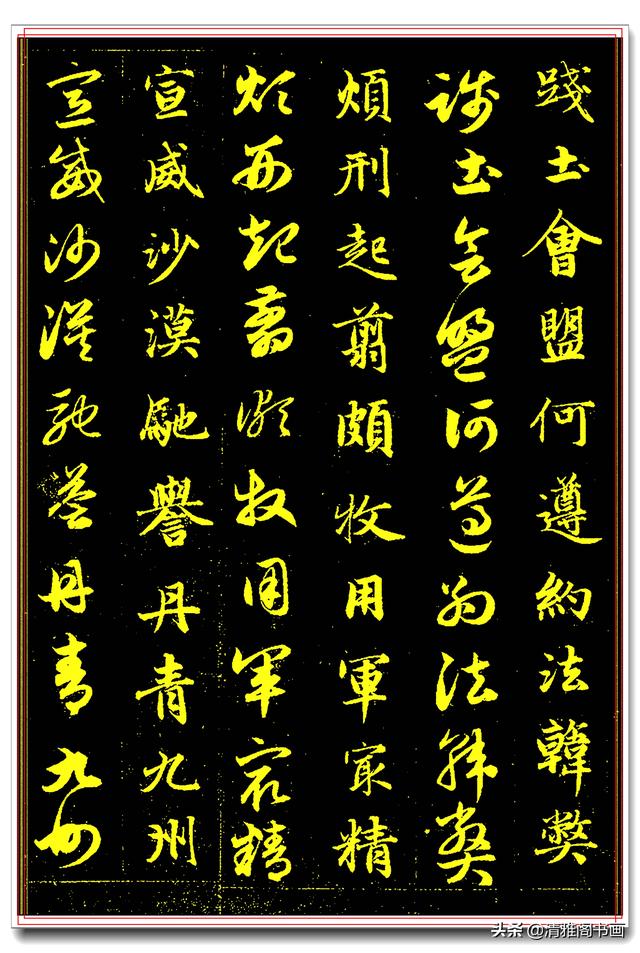 踐土會盟何遵約法韓弊
踐土會盟何遵約法韓弊
煩刑起翦頗牧用軍最精
煩刑起翦頗牧用軍最精
宣威沙漠馳譽丹青九州
宣威沙漠馳譽丹青九州
头条 @清雅阁书画